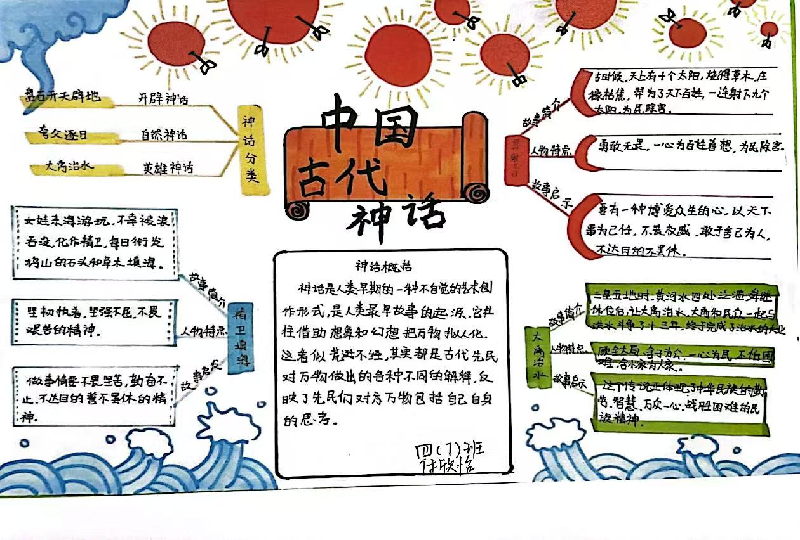 中国
古代
神话
神话分类
盘古开天辟地
开辟神话
夸父逐日
自然神话
大禹治水
英雄神话
精卫填海
故事简介
女娃东海游玩,不幸被浪
吞没,化作精卫,每日衔发
鸠山的石头和草木填海。
人物特点
坚韧执着,坚强不屈,不畏
艰苦的精神。
故事启示
做事情要不畏艰苦,勤奋不
止,不达目的誓不罢休的精
神。
神话概括
神话是人类早期的一种不自觉的艺术创
作形式,是人类最早故事的起源,它往
往借助想象和幻想把万物拟人化。
这看似荒诞不经,其实都是古代先民
对万物做出的各种不同的解释,反
映了先民们对万物包括自己自身
的思考。
四(7)班
故事简介
古时候,天上有十个太阳,烤得草木,庄
稼枯焦,
为了天下百姓,一连射下九个
太阳,为民除害。
人物特点
勇敢无畏,一心为百姓着想,为民除害
故事启示
要有一种博爱众生的心,以天下
事为己任,不畏权威,敢于舍己为人,
不达目的不罢休。
大禹治水
故事简介
三皇五帝时,黄河水四处泛滥,
让大禹治水,大禹和民众一起与
洪水斗争了十三年,终于完成了治水的大业
人物特点
顾全大局,一心为民,不怕困
难,
故事启示
这个传说正体现了中华民族的勤
劳、智慧、万众一心,战胜困难的民
族精神。